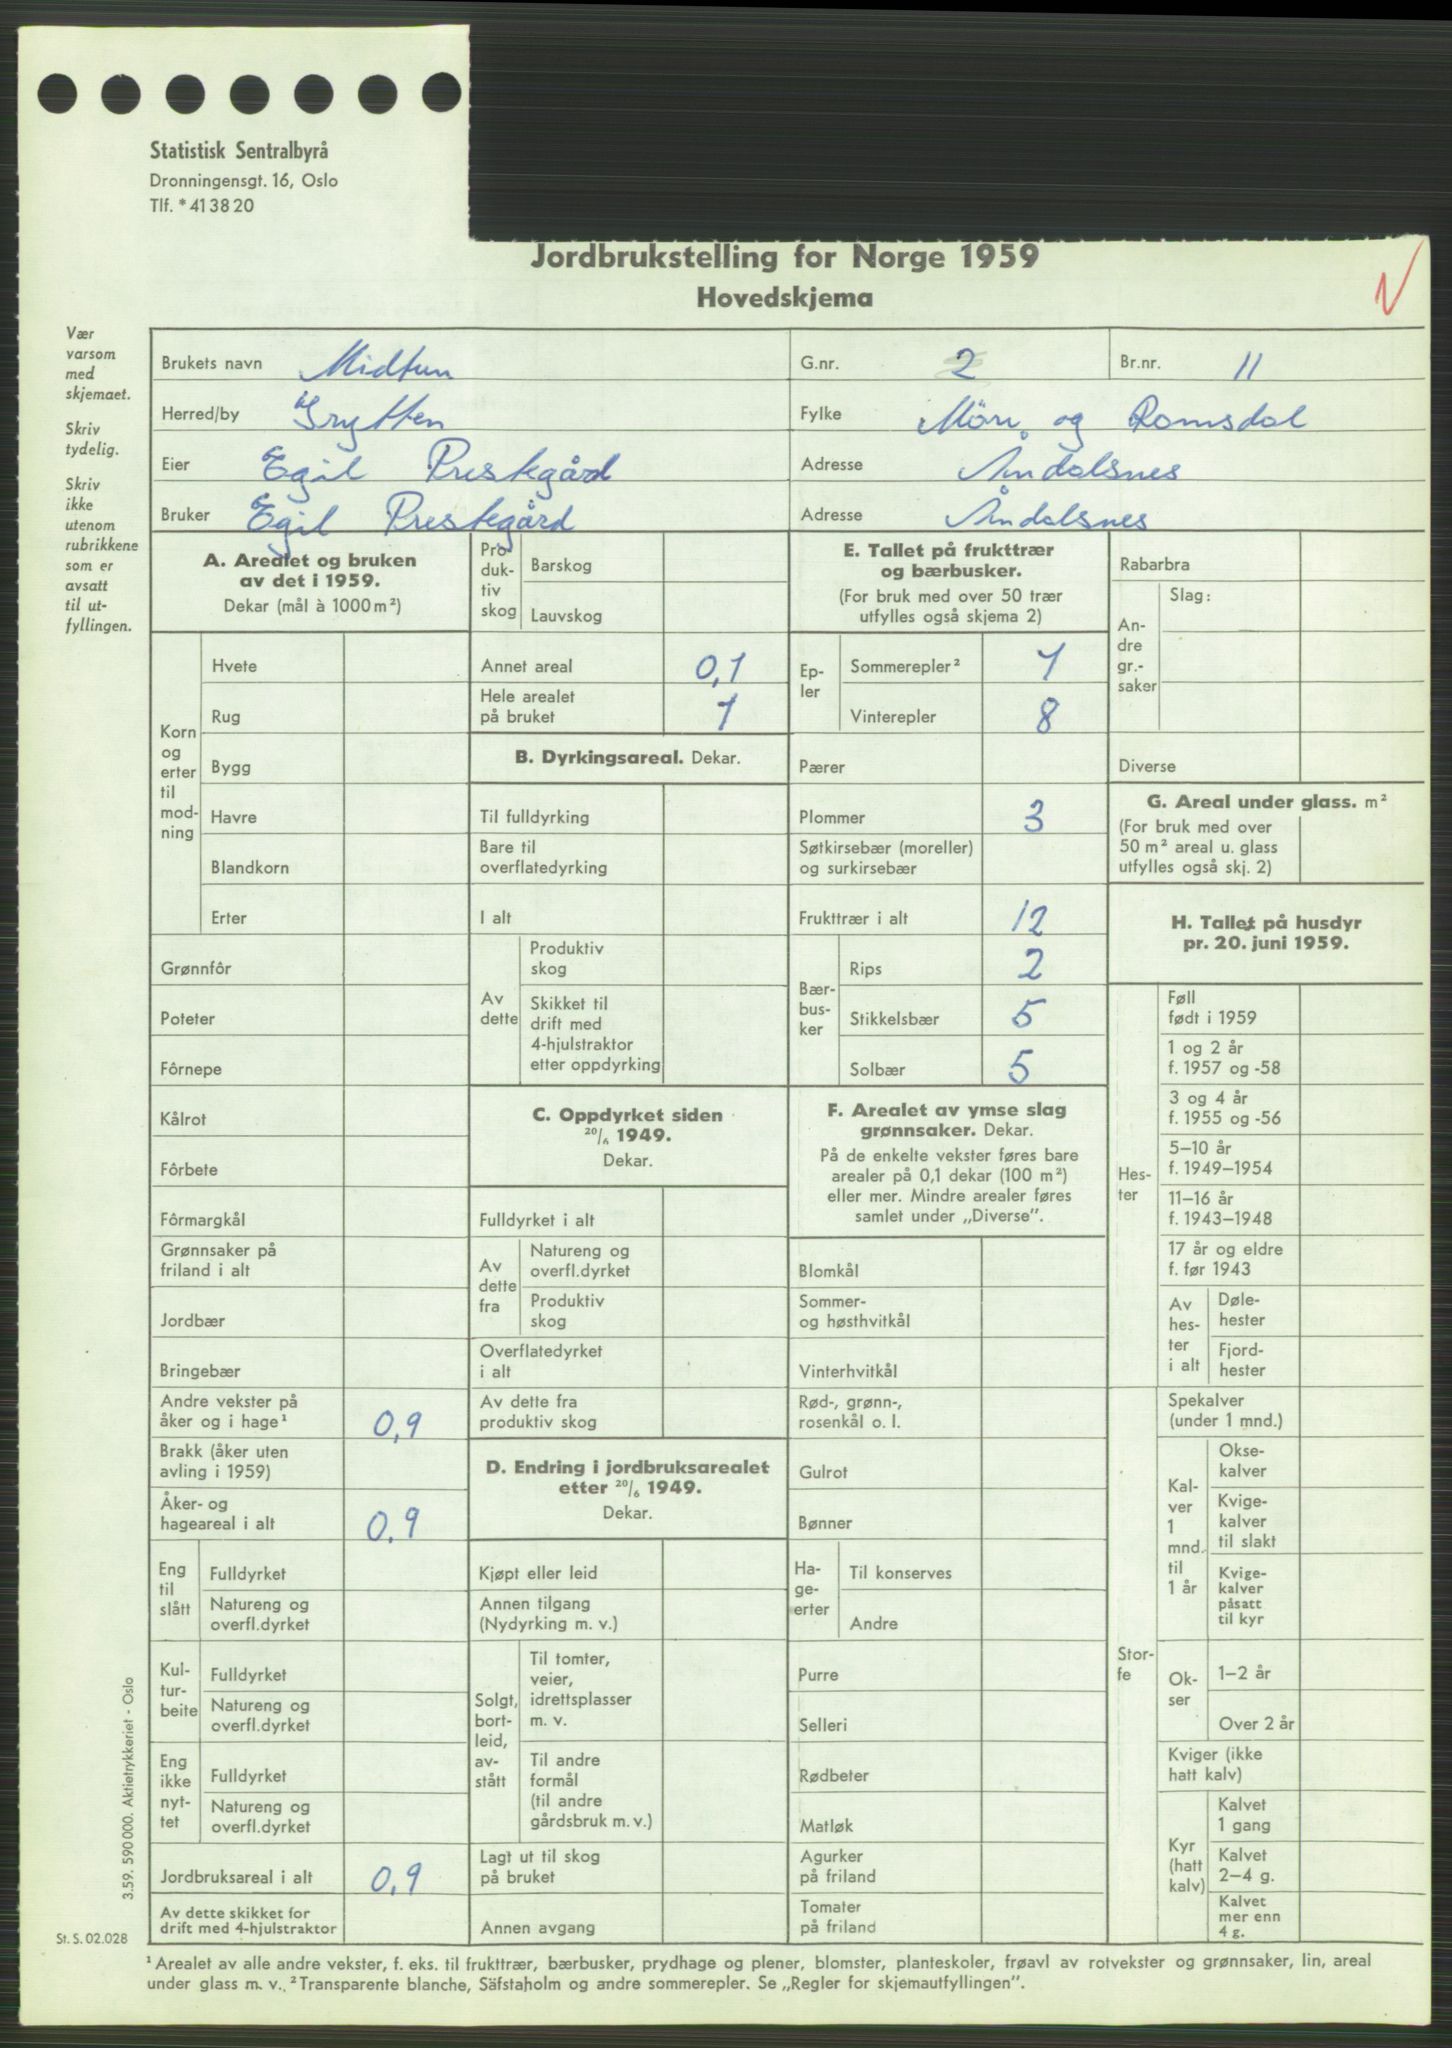 Statistisk Sentralbyrå
Dronningensgt. 16, Oslo
Tlf. *41 38 20
Jordbrukstelling for Norge 1959
Hovedskjema
Vær
varsom
med
skjemaet.
Skriv
tydelig.
Skriv
ikke
utenom
rubrikkene
som er
avsatt
til ut-
fyllingen.
Brukets navn Midtun G.nr. 2 Br.nr. 11
Herred/by Grytten Fylke Möre og Romsdal
Eier Egil Prestegård Adresse Åndalsnes
Bruker Egil Prestegård Adresse Åndalsnes
A. Arealet og bruken
av det i 1959.
Dekar (mål à 1000 m²)
Korn
og
erter
til
mod-
ning
Hvete
Rug
Bygg
Havre
Blandkorn
Erter
Grønnfôr
Poteter
Fôrnepe
Kålrot
Fôrbete
Fôrmargkål
Grønnsaker på
friland i alt
Jordbær
Bringebær
Andre vekster på
åker og i hage¹ 0,9
Brakk (åker uten
avling i 1959)
Åker- og
hageareal i alt 0,9
Eng
til
slått
Fulldyrket
Natureng og
overfl.dyrket
Kul-
tur-
beite
Fulldyrket
Natureng og
overfl.dyrket
Eng
ikke
nyt-
tet
Fulldyrket
Natureng og
overfl.dyrket
Jordbruksareal i alt 0,9
Av dette skikket for
drift med 4-hjulstraktor
Pro
duk-
tiv
skog
Barskog
Lauvskog
Annet areal 0,1
Hele arealet
på bruket 1
B. Dyrkingsareal. Dekar.
Til fulldyrking
Bare til
overflatedyrking
I alt
Av
dette
Produktiv
skog
Skikket til
drift med
4-hjulstraktor
etter oppdyrking
C. Oppdyrket siden
20/6 1949.
Dekar.
Fulldyrket i alt
Av
dette
fra
Natureng og
overfl.dyrket
Produktiv
skog
Overflatedyrket
i alt
Av dette fra
produktiv skog
D. Endring i jordbruksarealet
etter 20/6 1949.
Dekar.
Kjøpt eller leid
Annen tilgang
(Nydyrking m. v.)
Solgt,
bort-
leid,
av-
stått
Til tomter,
veier,
idrettsplasser
m. v.
Til andre
formål
(til andre
gårdsbruk m. v.)
Lagt ut til skog
på bruket
Annen avgang
E. Tallet på frukttrær
og bærbusker.
(For bruk med over 50 trær
utfylles også skjema 2)
Ep-
ler
Sommerepler² 1
Vinterepler 8
Pærer
Plommer 3
Søtkirsebær (moreller)
og surkirsebær
Frukttrær i alt 12
Bær-
bus-
ker
Rips 2
Stikkelsbær 5
Solbær 5
F. Arealet av ymse slag
grønnsaker. Dekar.
På de enkelte vekster føres bare
arealer på 0,1 dekar (100 m²)
eller mer. Mindre arealer føres
samlet under „Diverse”.
Blomkål
Sommer-
og høsthvitkål
Vinterhvitkål
Rød-, grønn-,
rosenkål o. l.
Gulrot
Bønner
Ha-
ge-
erter
Til konserves
Andre
Purre
Selleri
Rødbeter
Matløk
Agurker
på friland
Tomater
på friland
Rabarbra
An-
dre
gr.-
saker
Slag:
Diverse
G. Areal under glass. m²
(For bruk med over
50 m² areal u. glass
utfylles også skj. 2)
H. Tallet på husdyr
pr. 20. juni 1959.
Hes-
ter
Føll
født i 1959
1 og 2 år
f. 1957 og -58
3 og 4 år
f. 1955 og -56
5–10 år
f. 1949–1954
11–16 år
f. 1943–1948
17 år og eldre
f. før 1943
Av
hes-
ter
i alt
Døle-
hester
Fjord-
hester
Stor-
fe
Spekalver
(under 1 mnd.)
Kal-
ver
1
mnd.
til
1 år
Okse-
kalver
Kvige-
kalver
til slakt
Kvige-
kalver
påsatt
til kyr
Ok-
ser
1–2 år
Over 2 år
Kviger (ikke
hatt kalv)
Kyr
(hatt
kalv)
Kalvet
1 gang
Kalvet
2–4 g.
Kalvet
mer enn
4 g.
3.59. 590 000. Aktietrykkeriet - Oslo
St. S. 02.028
¹ Arealet av alle andre vekster, f. eks. til frukttrær, bærbusker, prydhage og plener, blomster, planteskoler, frøavl av rotvekster og grønnsaker, lin, areal
under glass m. v. ² Transparente blanche, Säfstaholm og andre sommerepler. Se „Regler for skjemautfyllingen”.